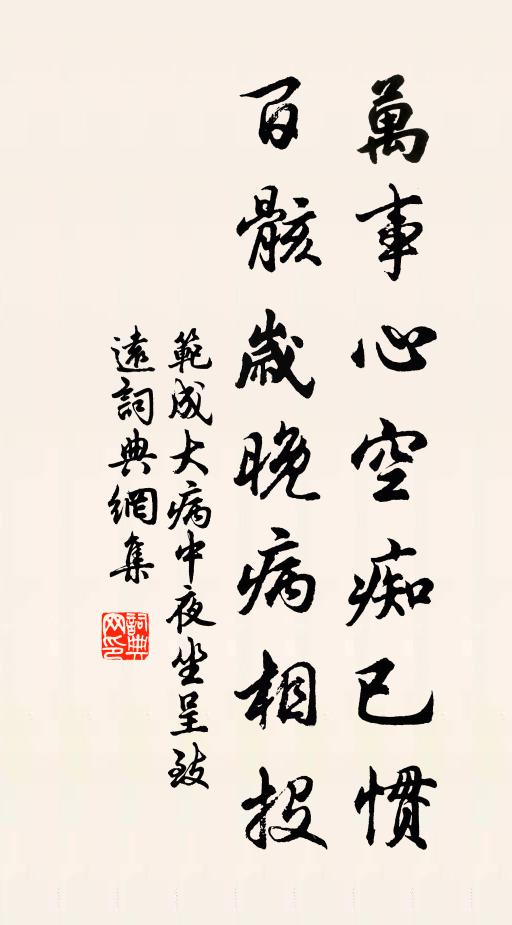 萬事心空痴已慣
百骸歲晚病相投
範成大病中夜坐呈致
遠詞典網集
詞典网印